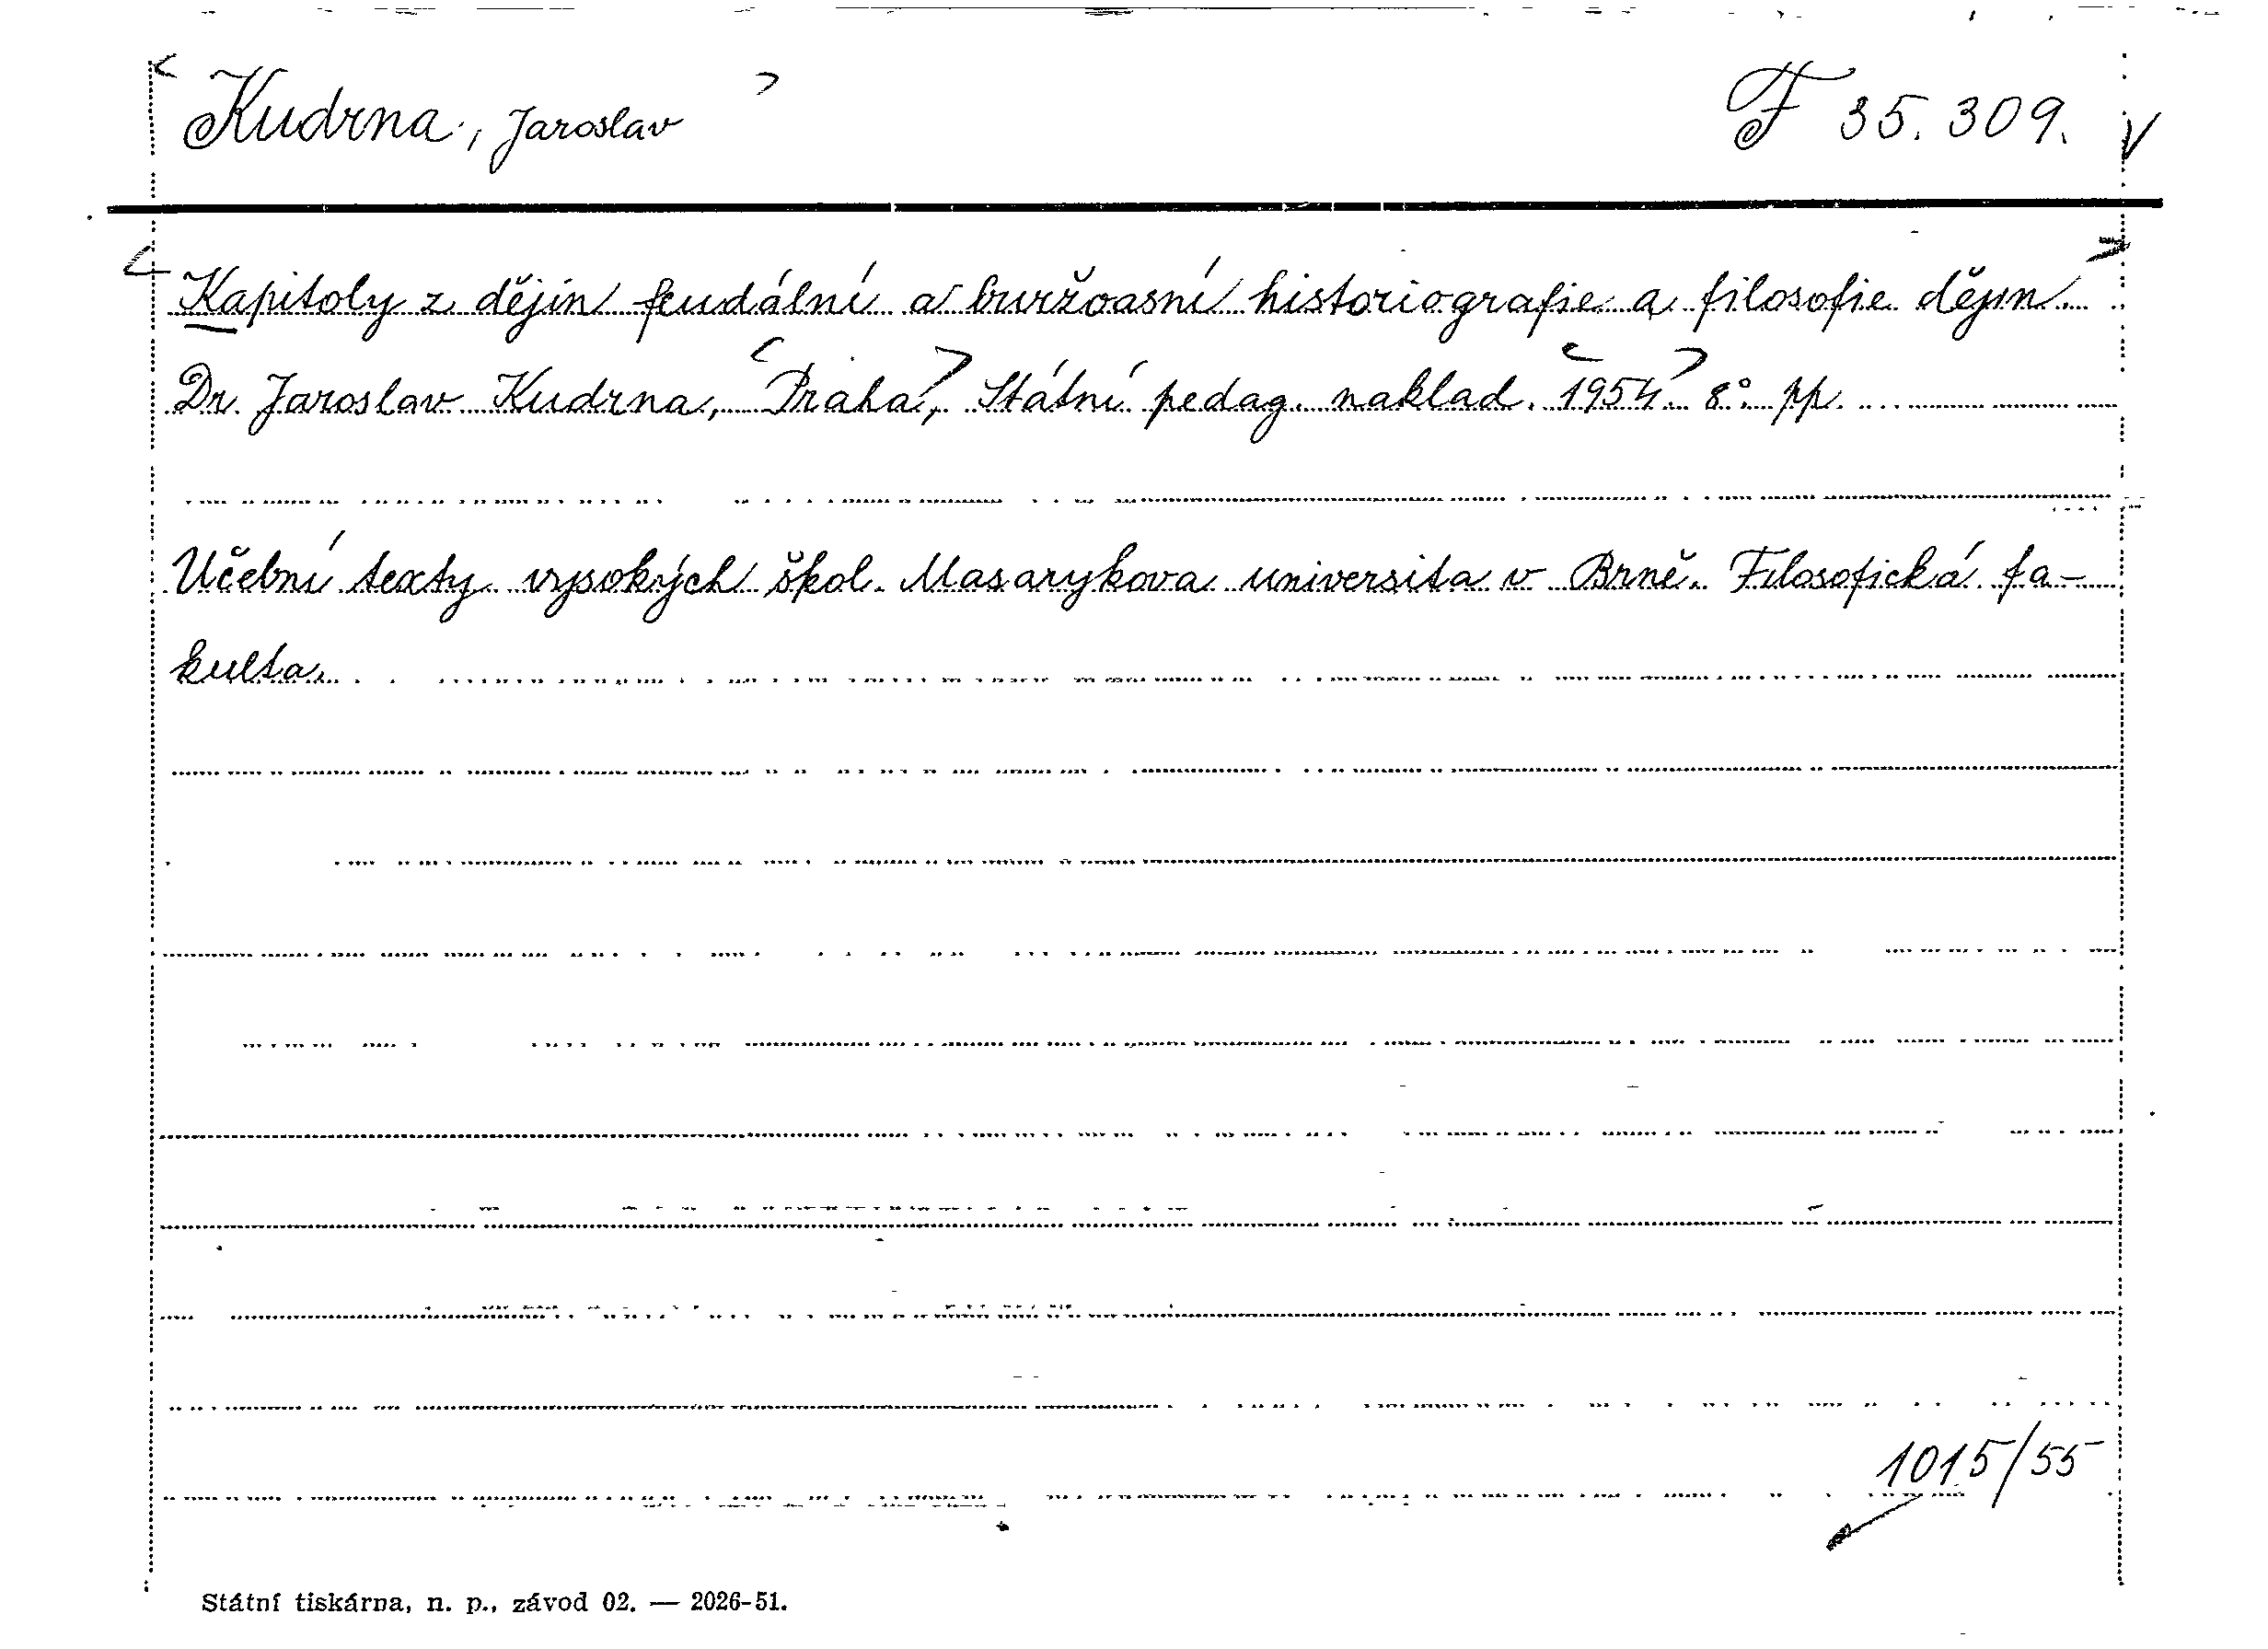 Kudrna, Jaroslav F 35.309.
Kapitoly z dějin feudální a buržoasní historiografie a filosofie dějin.
Dr. Jaroslav Kudrna, Praha, Státní pedag. naklad. 1954. 8° pp.
Učební texty vysokých škol. Masarykova universita v Brně. Filosofická fa-
kulta.
1015/55
Státní tiskárna, n. p., závod 02. — 2026-51.